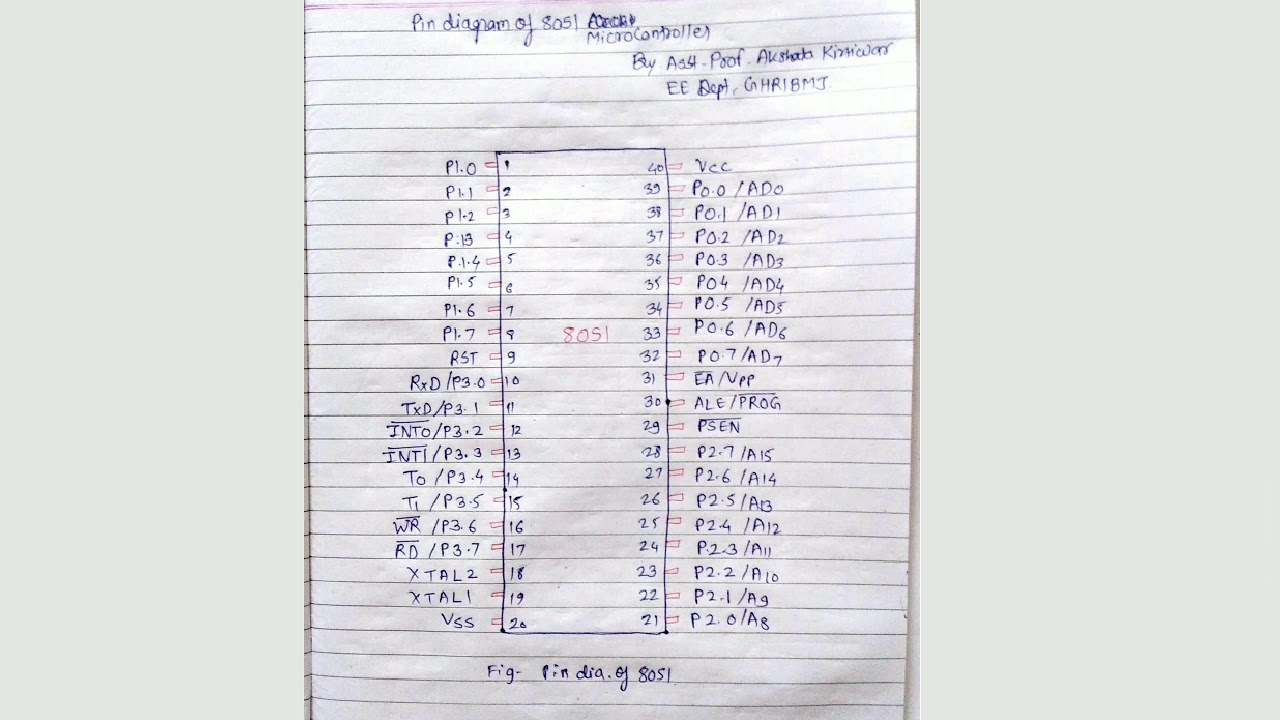 Pin diagram of 8051
Microcontroller
By Asst. Poof. Akshada Kirtiwar
EE Dept, GHRIBMJ.
P1.0 1 40 Vcc
P1.1 2 39 P0.0 /AD0
P1.2 3 38 P0.1 /AD1
P.13 4 37 P0.2 /AD2
P.1.4 5 36 P0.3 /AD3
P1.5 6 35 P04 /AD4
P1.6 7 34 P0.5 /AD5
P1.7 8 8051 33 P0.6 /AD6
RST 9 32 P0.7/AD7
RxD/P3.0 10 31 E̅A̅/Vpp
TxD/P3.1 11 30 ALE/P̅R̅O̅G̅
I̅N̅T̅0̅/P3.2 12 29 P̅S̅E̅N̅
I̅N̅T̅1̅/P3.3 13 28 P2.7/A15
T0 /P3.4 14 27 P2.6/A14
T1 /P3.5 15 26 P2.5/A13
W̅R̅ /P3.6 16 25 P2.4/A12
R̅D̅ /P3.7 17 24 P2.3/A11
XTAL2 18 23 P2.2/A10
XTAL1 19 22 P2.1/A9
Vss 20 21 P2.0/A8
Fig- Pin dia. of 8051